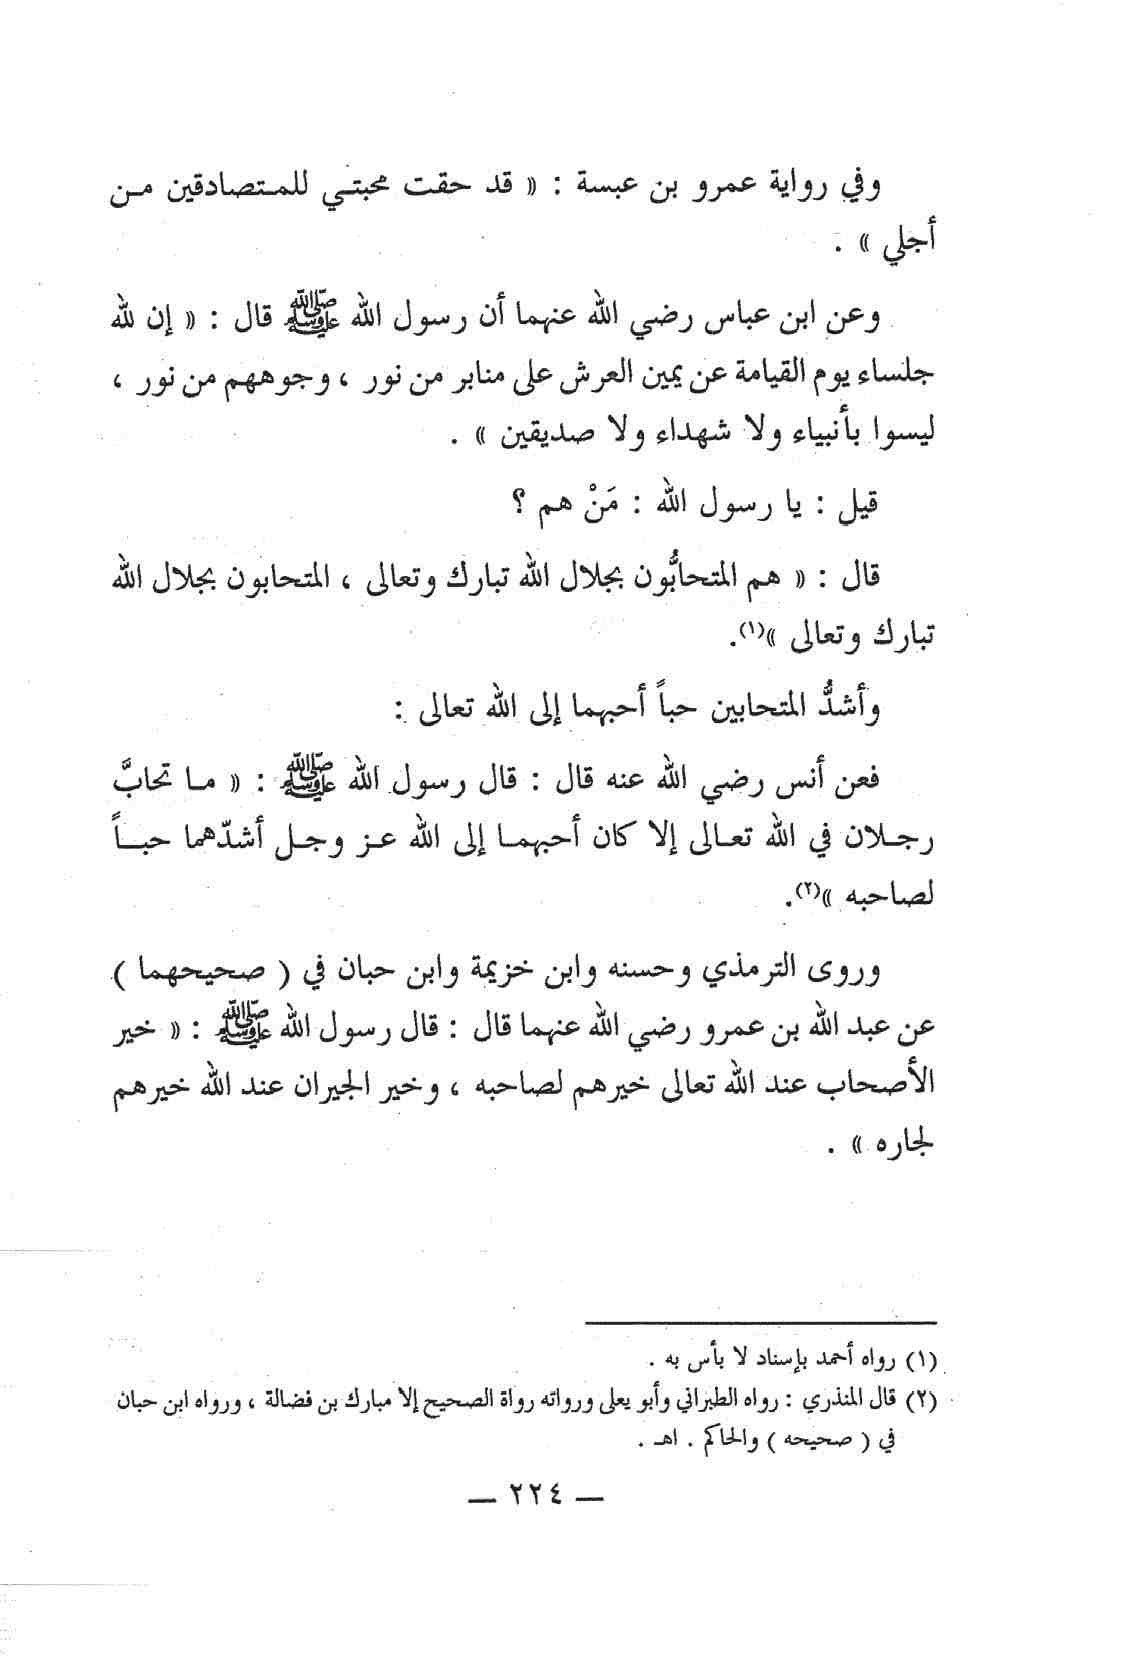 وفي رواية عمرو بن عبسة : « قد حقت محبتي للمتصادقين من
أجلي » .
وعن ابن عباس رضي الله عنهما أن رسول الله ﷺ قال : « إن لله
جلساء يوم القيامة عن يمين العرش على منابر من نور ، وجوههم من نور ،
ليسوا بأنبياء ولا شهداء ولا صديقين » .
قيل : يا رسول الله : مَنْ هم ؟
قال : « هم المتحابُّون بجلال الله تبارك وتعالى ، المتحابون بجلال الله
تبارك وتعالى »(١).
وأشدُّ المتحابين حباً أحبهما إلى الله تعالى :
فعن أنس رضي الله عنه قال : قال رسول الله ﷺ : « ما تحابَّ
رجلان في الله تعالى إلا كان أحبهما إلى الله عز وجل أشدّهما حباً
لصاحبه »(٢).
وروى الترمذي وحسنه وابن خزيمة وابن حبان في ( صحيحهما )
عن عبد الله بن عمرو رضي الله عنهما قال : قال رسول الله ﷺ : « خير
الأصحاب عند الله تعالى خيرهم لصاحبه ، وخير الجيران عند الله خيرهم
لجاره » .
(١) رواه أحمد بإسناد لا بأس به .
(٢) قال المنذري : رواه الطبراني وأبو يعلى ورواته رواة الصحيح إلا مبارك بن فضالة ، ورواه ابن حبان
في ( صحيحه ) والحاكم . اهـ .
— ٢٢٤ —